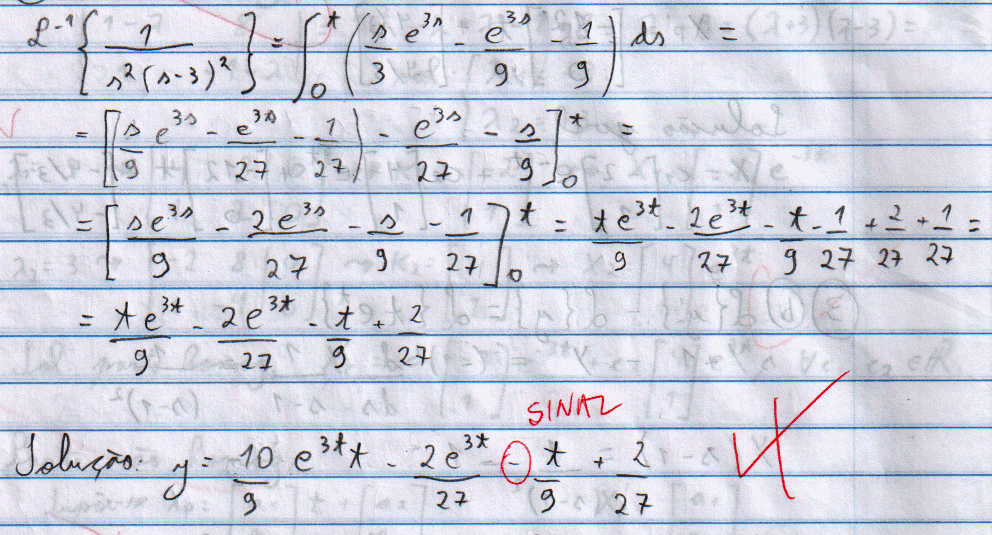 L⁻¹ { 1 / s²(s-3)² } = ∫₀ᵗ ( s/3 e^{3s} - e^{3s}/9 - 1/9 ) ds =
= [ s/9 e^{3s} - e^{3s}/27 - 1/27 ) - e^{3s}/27 - s/9 ]₀ᵗ =
= [ se^{3s}/9 - 2e^{3s}/27 - s/9 - 1/27 ]₀ᵗ = te^{3t}/9 - 2e^{3t}/27 - t/9 - 1/27 + 2/27 + 1/27 =
= te^{3t}/9 - 2e^{3t}/27 - t/9 + 2/27
SINAL
Solução: y = 10/9 e^{3t}t - 2e^{3t}/27 - t/9 + 2/27